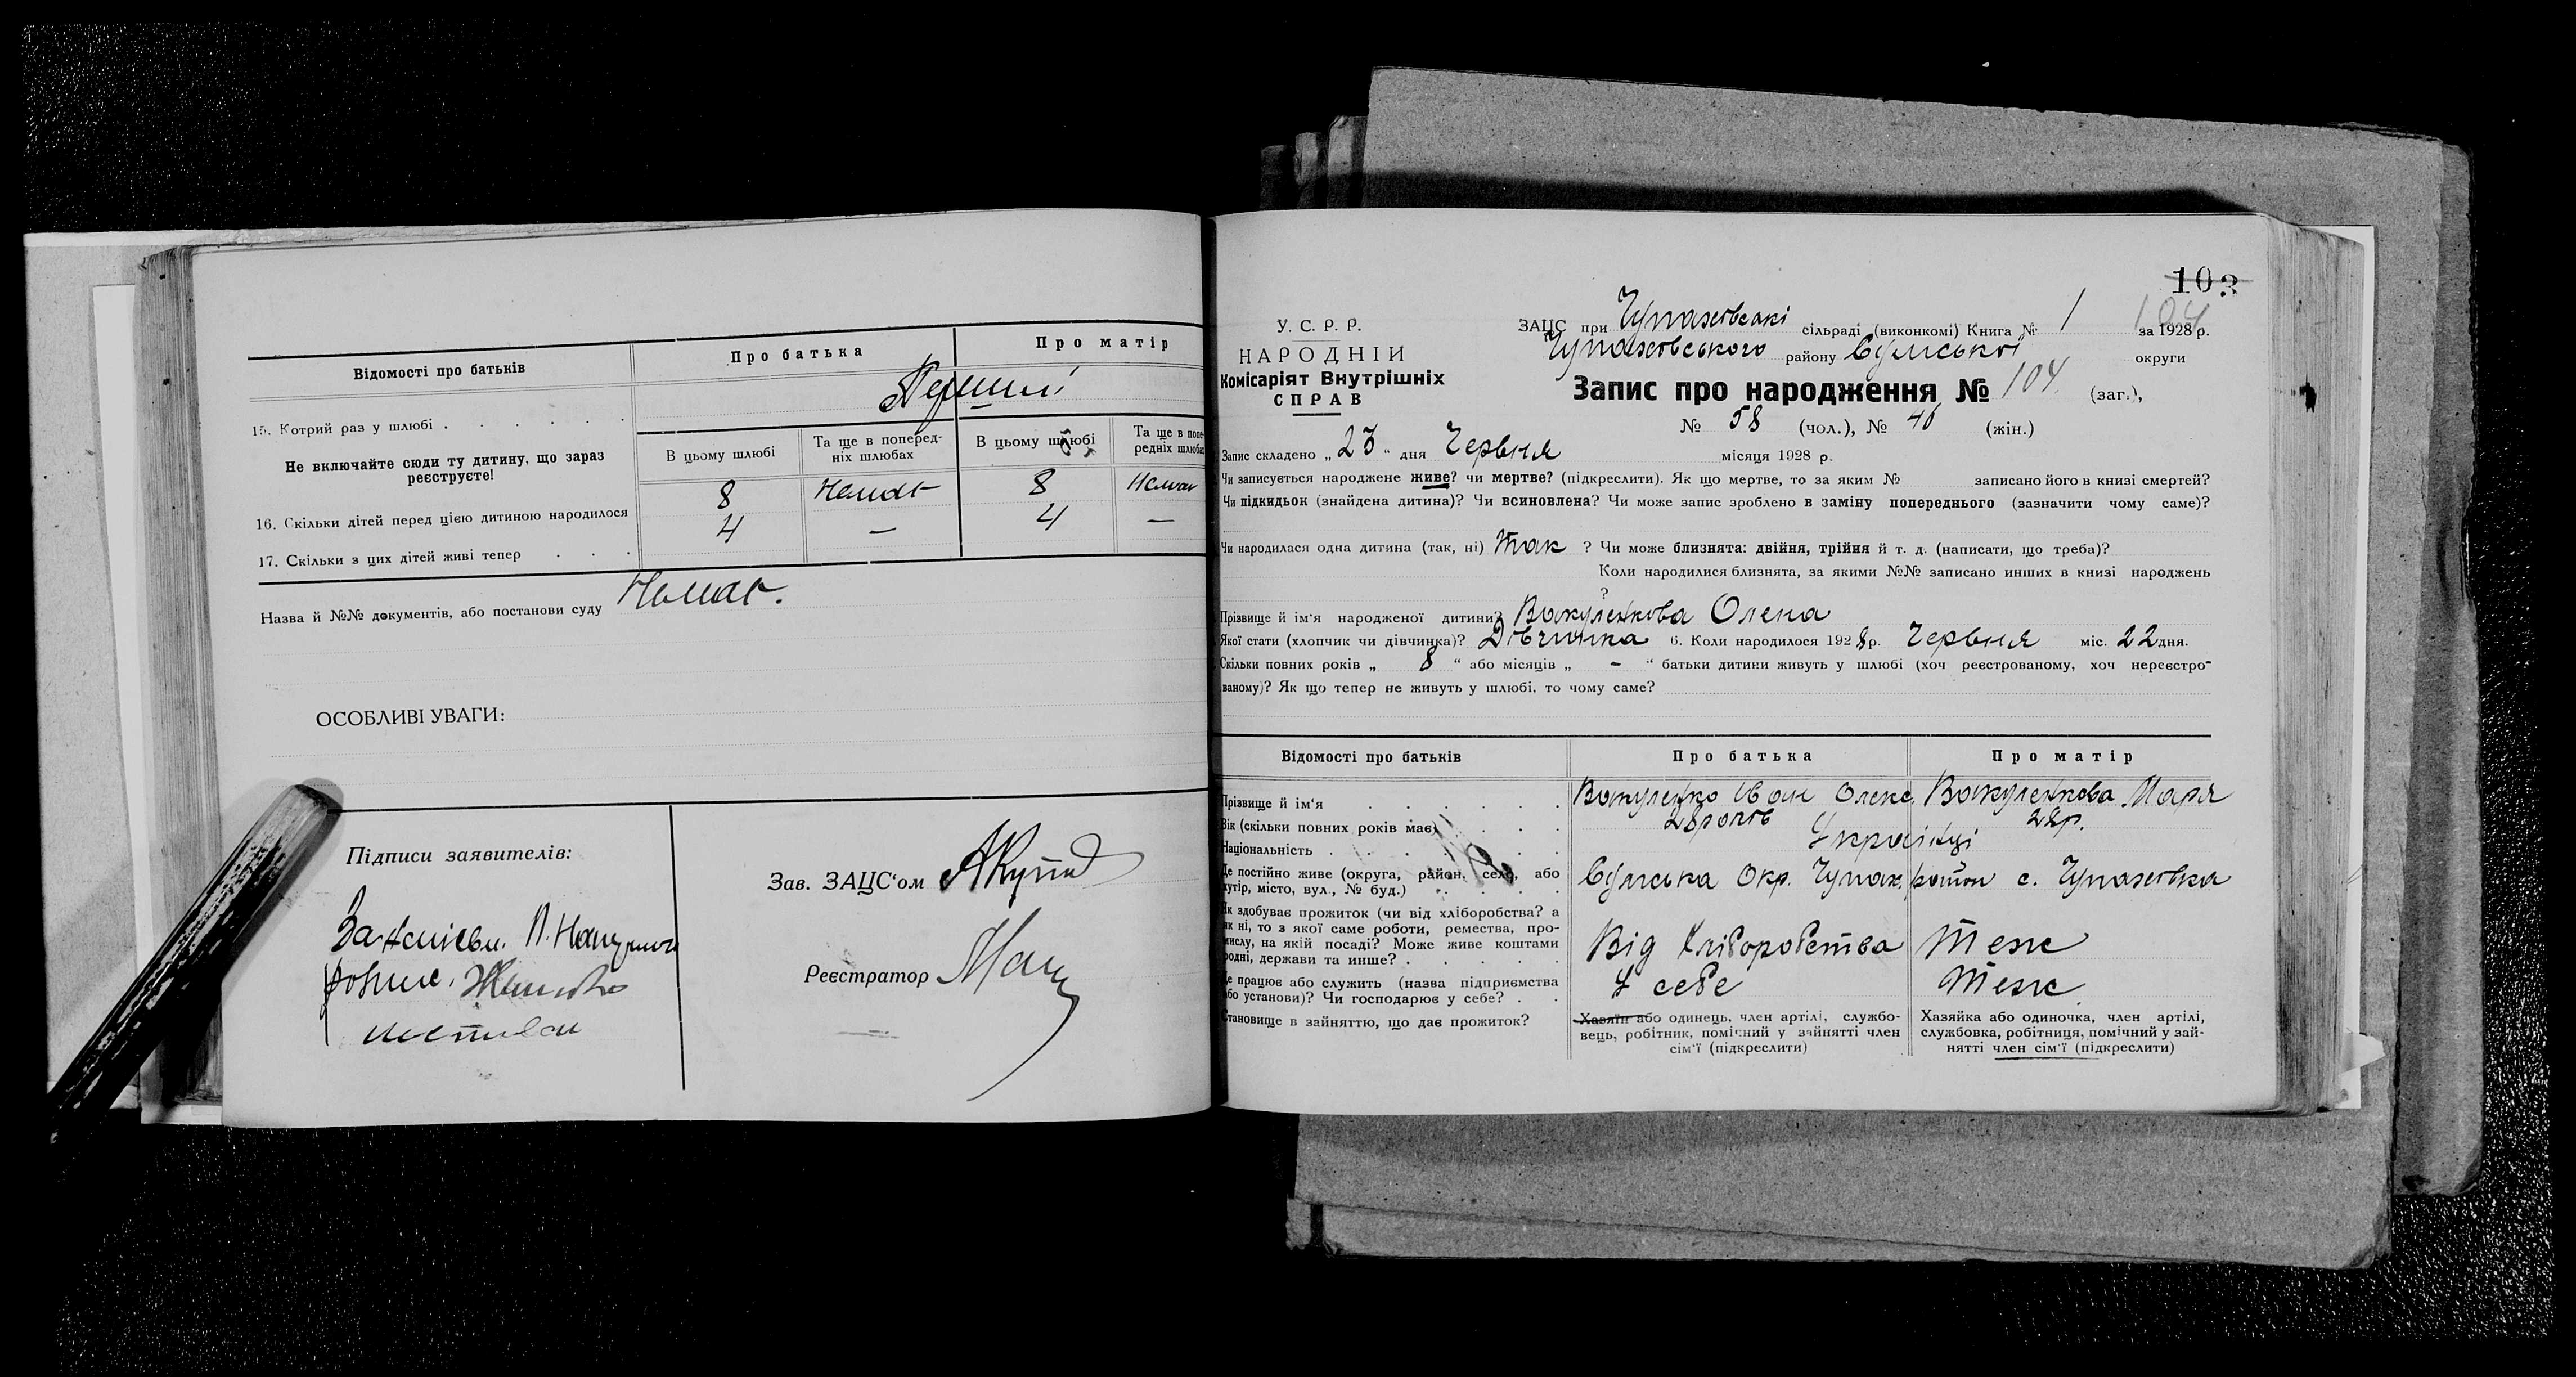 Відомості про батьків
Про батька
Про матір
15. Котрий раз у шлюбі
Перший
Не включайте сюди ту дитину, що зараз
реєструєте!
В цьому шлюбі
Та ще в поперед-
ніх шлюбах
В цьому шлюбі
Та ще в попе-
редніх шлюбах
16. Скільки дітей перед цією дитиною народилося
8 Немає 8 Немає
17. Скільки з цих дітей живі тепер
4 — 4 —
Назва й №№ документів, або постанови суду Немає.
ОСОБЛИВІ УВАГИ:
Підписи заявителів:
За
Зав. ЗАЦС'ом
Реєстратор
103
104
У. С. Р. Р.
НАРОДНІЙ
Комісаріят Внутрішніх
СПРАВ
ЗАЦС при Чупахівській сільраді (виконкомі) Книга № 1 за 1928 р.
Чупахівського району Сумської округи
Запис про народження № 104 (заг.),
№ 58 (чол.), № 46 (жін.)
Запис складено „ 23 “ дня Червня місяця 1928 р.
Чи записується народжене живе? чи мертве? (підкреслити). Як що мертве, то за яким № записано його в книзі смертей?
Чи підкидьок (знайдена дитина)? Чи всиновлена? Чи може запис зроблено в заміну попереднього (зазначити чому саме)?
Чи народилася одна дитина (так, ні) Так ? Чи може близнята: двійня, трійня й т. д. (написати, що треба)?
Коли народилися близнята, за якими №№ записано инших в книзі народжень
?
Прізвище й ім'я народженої дитини? Вакуленкова Олена
Якої стати (хлопчик чи дівчинка)? Дівчинка 6. Коли народилося 1928 р. Червня міс. 22 дня.
Скільки повних років „ 8 “ або місяців „ - “ батьки дитини живуть у шлюбі (хоч реєстрованому, хоч нереєстро-
ваному)? Як що тепер не живуть у шлюбі, то чому саме?
Відомості про батьків
Про батька
Про матір
Прізвище й ім'я
Вакуленко Іван Олекс.
Вакуленкова Марія
Вік (скільки повних років має)
28 років
28 р.
Національність
Українці
Де постійно живе (округа, район, село, або
хутір, місто, вул., № буд.)
Сумська Окр. Чупах. район с. Чупахівка
Як здобуває прожиток (чи від хліборобства? а
як ні, то з якої саме роботи, ремества, про-
мислу, на якій посаді? Може живе коштами
родні, держави та инше?
Від хліборобства
Теж
Де працює або служить (назва підприємства
або установи)? Чи господарює у себе?
У себе
Теж
Становище в зайняттю, що дає прожиток?
Хазяїн або одинець, член артілі, службо-
вець, робітник, помічний у зайнятті член
сім'ї (підкреслити)
Хазяйка або одиночка, член артілі,
службовка, робітниця, помічний у зай-
нятті член сім'ї (підкреслити)